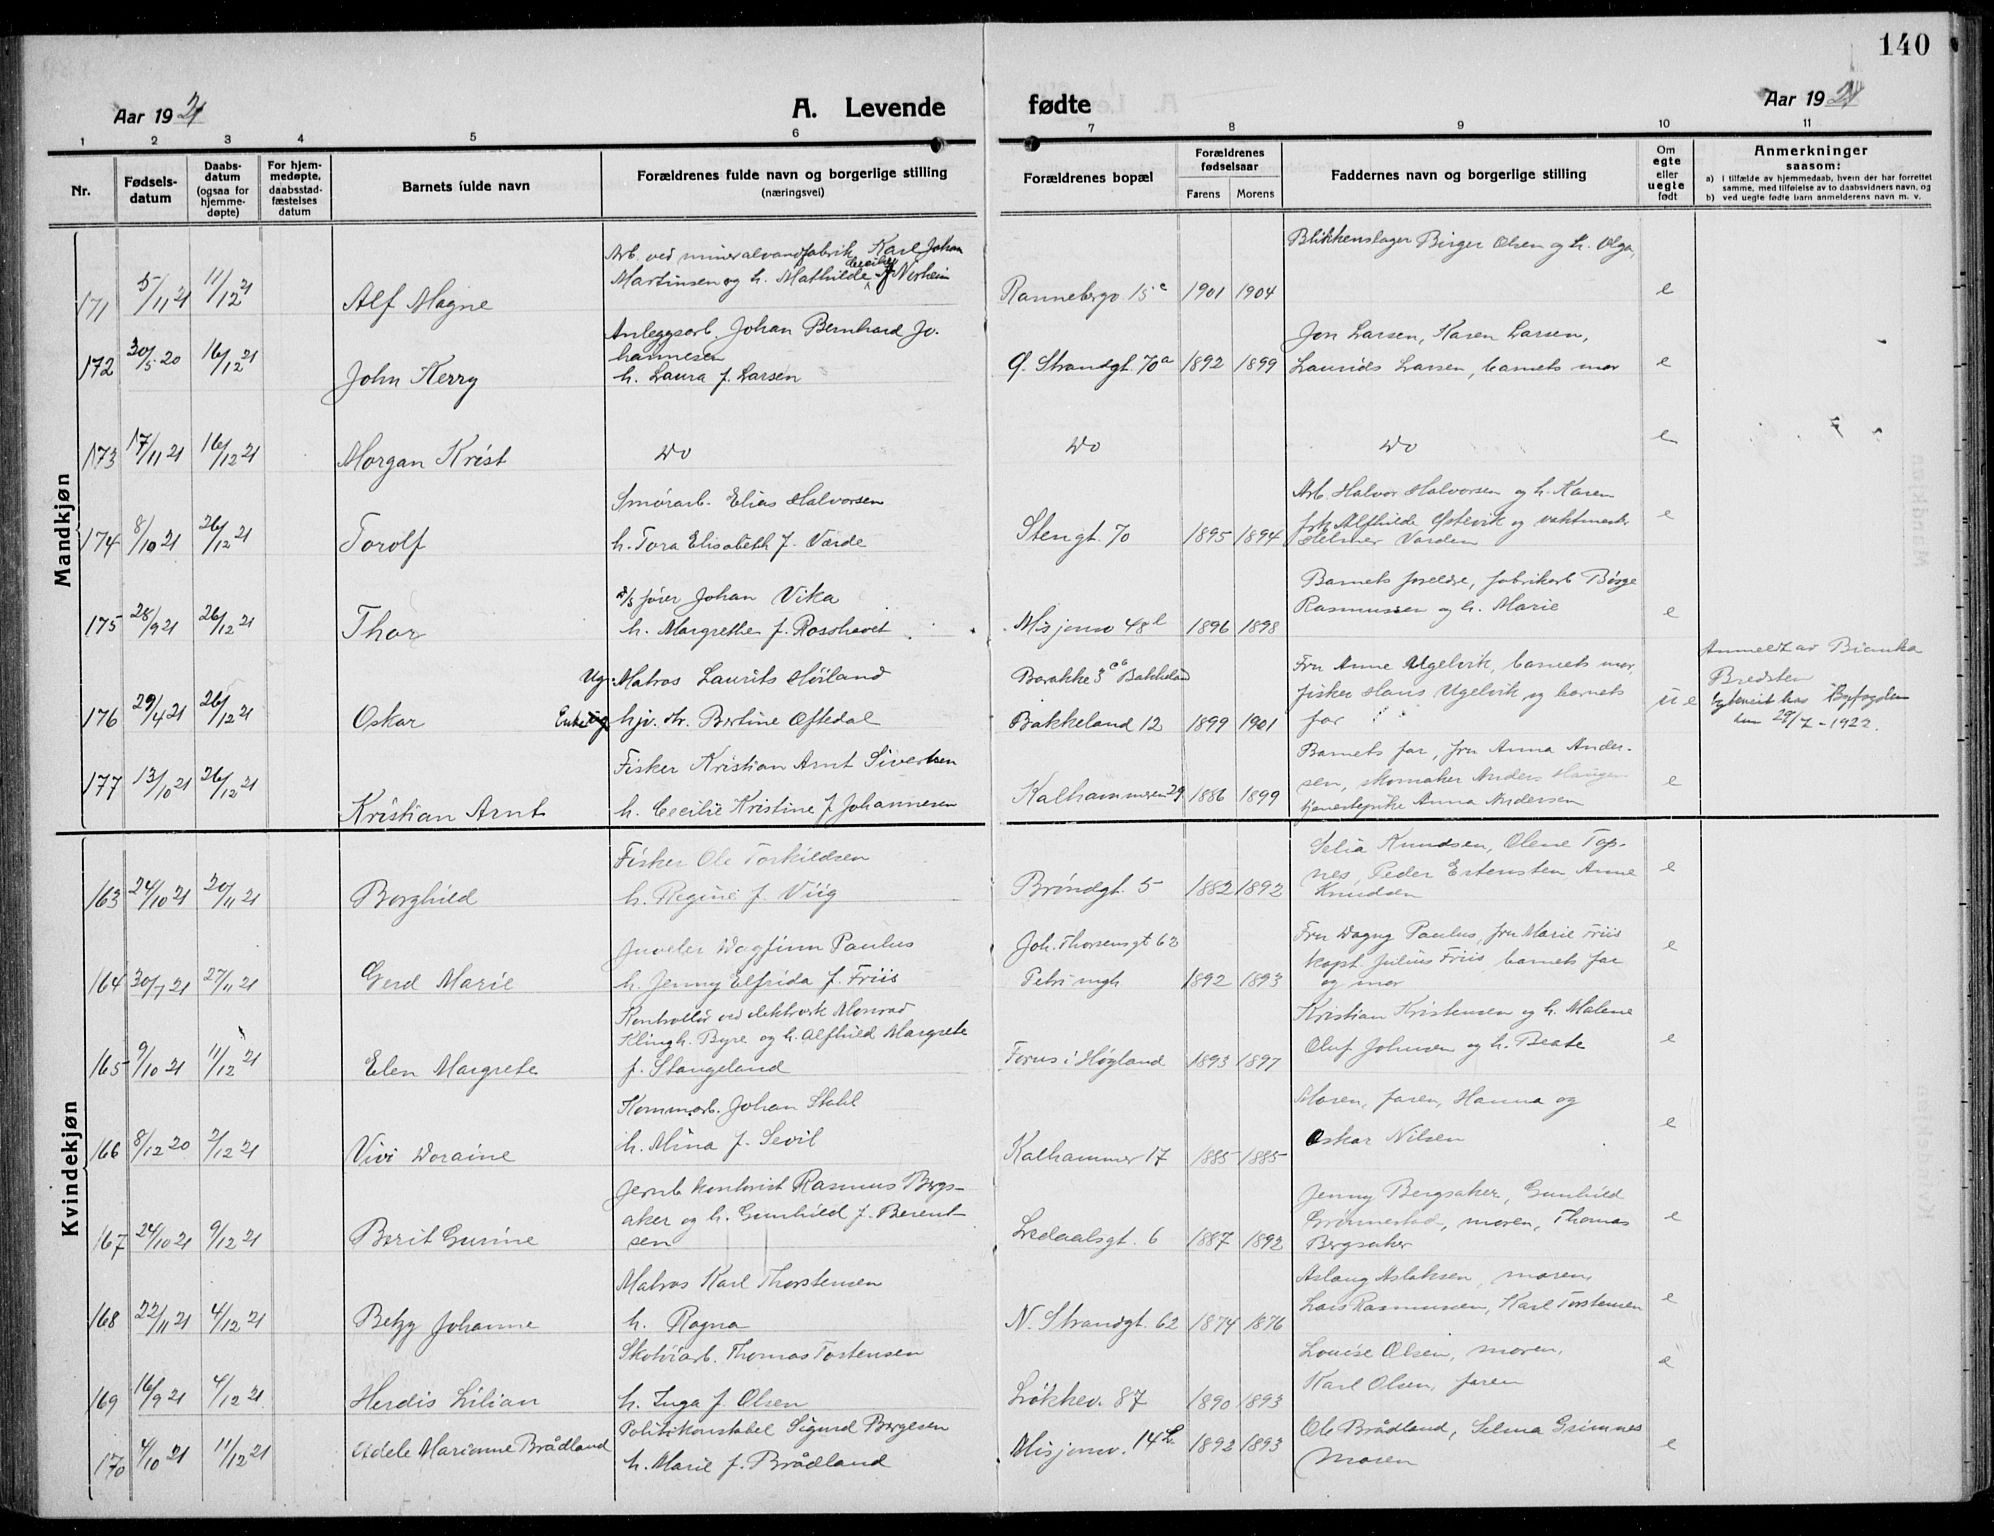 140
Aar 1921
A. Levende
fødte
Aar 1921
1 2 3 4 5 6 7 8 9 10 11
Nr.
Fødsels-
datum
Daabs-
datum
(ogsaa for
hjemme-
døpte)
For hjem-
medøpte,
daabsstad-
fæstelses
datum
Barnets fulde navn
Forældrenes fulde navn og borgerlige stilling
(næringsvei)
Forældrenes bopæl
Forældrenes
fødselsaar
Farens Morens
Faddernes navn og borgerlige stilling
Om
egte
eller
uegte
født
Anmerkninger
saasom:
a) i tilfælde av hjemmedaab, hvem der har forrettet
samme, med tilføielse av to daabsvidners navn, og
b) ved uegte fødte barn anmelderens navn m. v.
Mandkjøn
171 5/11 21 11/12 21 Alf Magne
Arb. ved mineralvandfabrik Karl Johan
Martinsen og h. Mathilde Cecilie f. Norheim
Rannebergv. 15c 1901 1904
Blikkenslager Birger Olsen og h. Olga,
e
172 30/5 20 16/12 21 John Kerry
Anleggsarb. Johan Bernhard Jo-
hannesen
h. Laura f. Larsen
Ø. Strandgt. 70a 1892 1899
Jon Larsen, Karen Larsen,
Laurids Larsen, barnets mor
e
173 17/11 21 16/12 21 Morgan Krist
Do
Do
Do
e
174 8/10 21 26/12 21 Torolf
Smørarb. Elias Halvorsen
h. Tora Elisabeth f. Varde
Stengt. 70 1895 1894
Arb. Halvor Halvorsen og h. Karen
frk Alfhilde Østevik og vaktmester
Helmer Varden
e
175 28/9 21 26/12 21 Thor
D/s fører Johan Vika
h. Margrethe f. Rosshavet
Misjonsv 48b 1896 1898
Barnets forældre, fabrikarb Børge
Rasmussen og h. Marie
e
176 29/4 21 26/12 21 Oskar
Ug. Matros Laurits Høiland
hjv. Hr. Bertine Oftedal
Barakke 3 Bakkeland
Bakkeland 12 1899 1901
Fru Anne Ugelvik, barnets mor,
fisker Hans Ugelvik og barnets
far
u e
Anmeldt av Bianka
Bredsten
hos Byfogden
den 29/7 - 1922.
177 13/10 21 26/12 21 Kristian Arnt
Fisker Kristian Arnt Sivertsen
h. Cecilie Kristine f. Johannesen
Kalhammeren 29 1886 1899
Barnets far, fru Anna Ander-
sen, skomaker Anders Haugen
tjenestepike Anna Andersen
e
Kvindekjøn
163 24/10 21 20/11 21 Borghild
Fisker Ole Torkildsen
h. Regine f. Viig
Brøndgt. 5 1882 1892
Selia Knudsen, Olene Top-
nes, Peder Ertensten Anne
Knudsen
e
164 30/7 21 27/11 21 Gerd Marie
Juveler Dagfinn Paulus
h. Jenny Elfrida f. Friis
Joh. Thorsensgt 62
Petri mgh 1892 1893
Fru Dagny Paulus, fru Marie Friis
kapt. Julius Friis barnets far
og mor
e
165 9/10 21 11/12 21 Elen Margrete
Kontrollør ved elektverk Monrad
Klingh. Byre og h. Alfhild Margrete
f. Stangeland
Forus i Høyland 1893 1897
Kristian Kristensen og h. Malene
Oluf Johnsen og h. Beate
e
166 8/12 20 2/12 21 Vivi Doraine
Kommarb. Johan Stahl
h. Mina f. Sevil
Kalhammer 17 1885 1885
Moren, faren, Hanna og
Oskar Nilsen
e
167 24/10 21 9/12 21 Berit Gurine
Jernb kontorist Rasmus Bergs-
aker og h. Gunhild f. Berent-
sen
Ledaalsgt. 6 1887 1892
Jenny Bergsaker, Gunhild
Grønnestad, moren, Thomas
Bergsaker
e
168 22/11 21 4/12 21 Betzy Johanne
Matros Karl Thorstensen
h. Ragna
N. Strandgt. 62 1874 1876
Aslaug Aslaksen, moren,
Lars Rasmussen, Karl Torstensen
e
169 16/9 21 4/12 21 Herdis Lilian
Skotøiarb. Thomas Tostensen
h. Inga f. Olsen
Løkkev. 87 1890 1893
Louise Olsen, moren,
Karl Olsen, faren
e
170 4/10 21 11/12 21 Adele Marianne Brådland
Politikonstabel Sigurd Børgesen
h. Marie f. Brådland
Misjonsv. 14b 1892 1893
Ole Brådland, Selma Grimnes
Moren
e